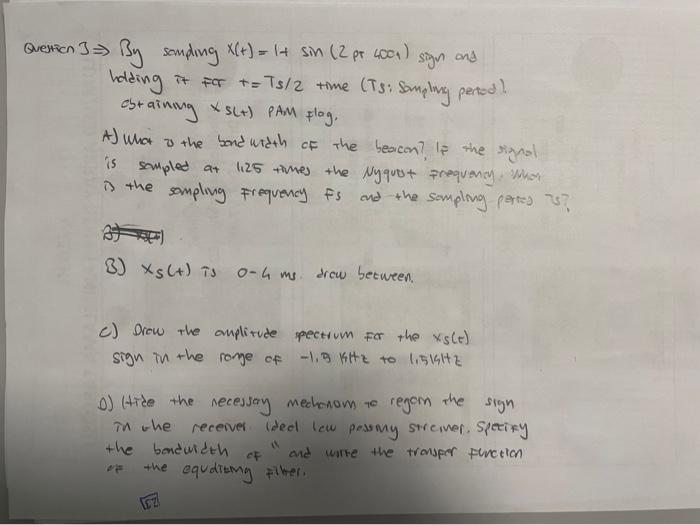 Question 3 => By sampling x(t) = 1+ sin (2 pi 400t) sign and
holding it for t = Ts/2 time (Ts: Sampling period).
obtaining xs(t) PAM flag.
A) What is the bandwidth of the beacon? If the signal
is sampled at 1.25 times the Nyquist frequency. What
is the sampling frequency Fs and the sampling period Ts?
B) xs(t) is 0-4 ms. draw between.
C) Draw the amplitude spectrum for the xs(t)
sign in the range of -1,5 KHz to 1,5 KHz
D) the necessary mechanism to regain the sign
in the receiver. Ideal low passing strainer. Specify
the bandwidth of " and write the transfer function
of the equalizing filter.